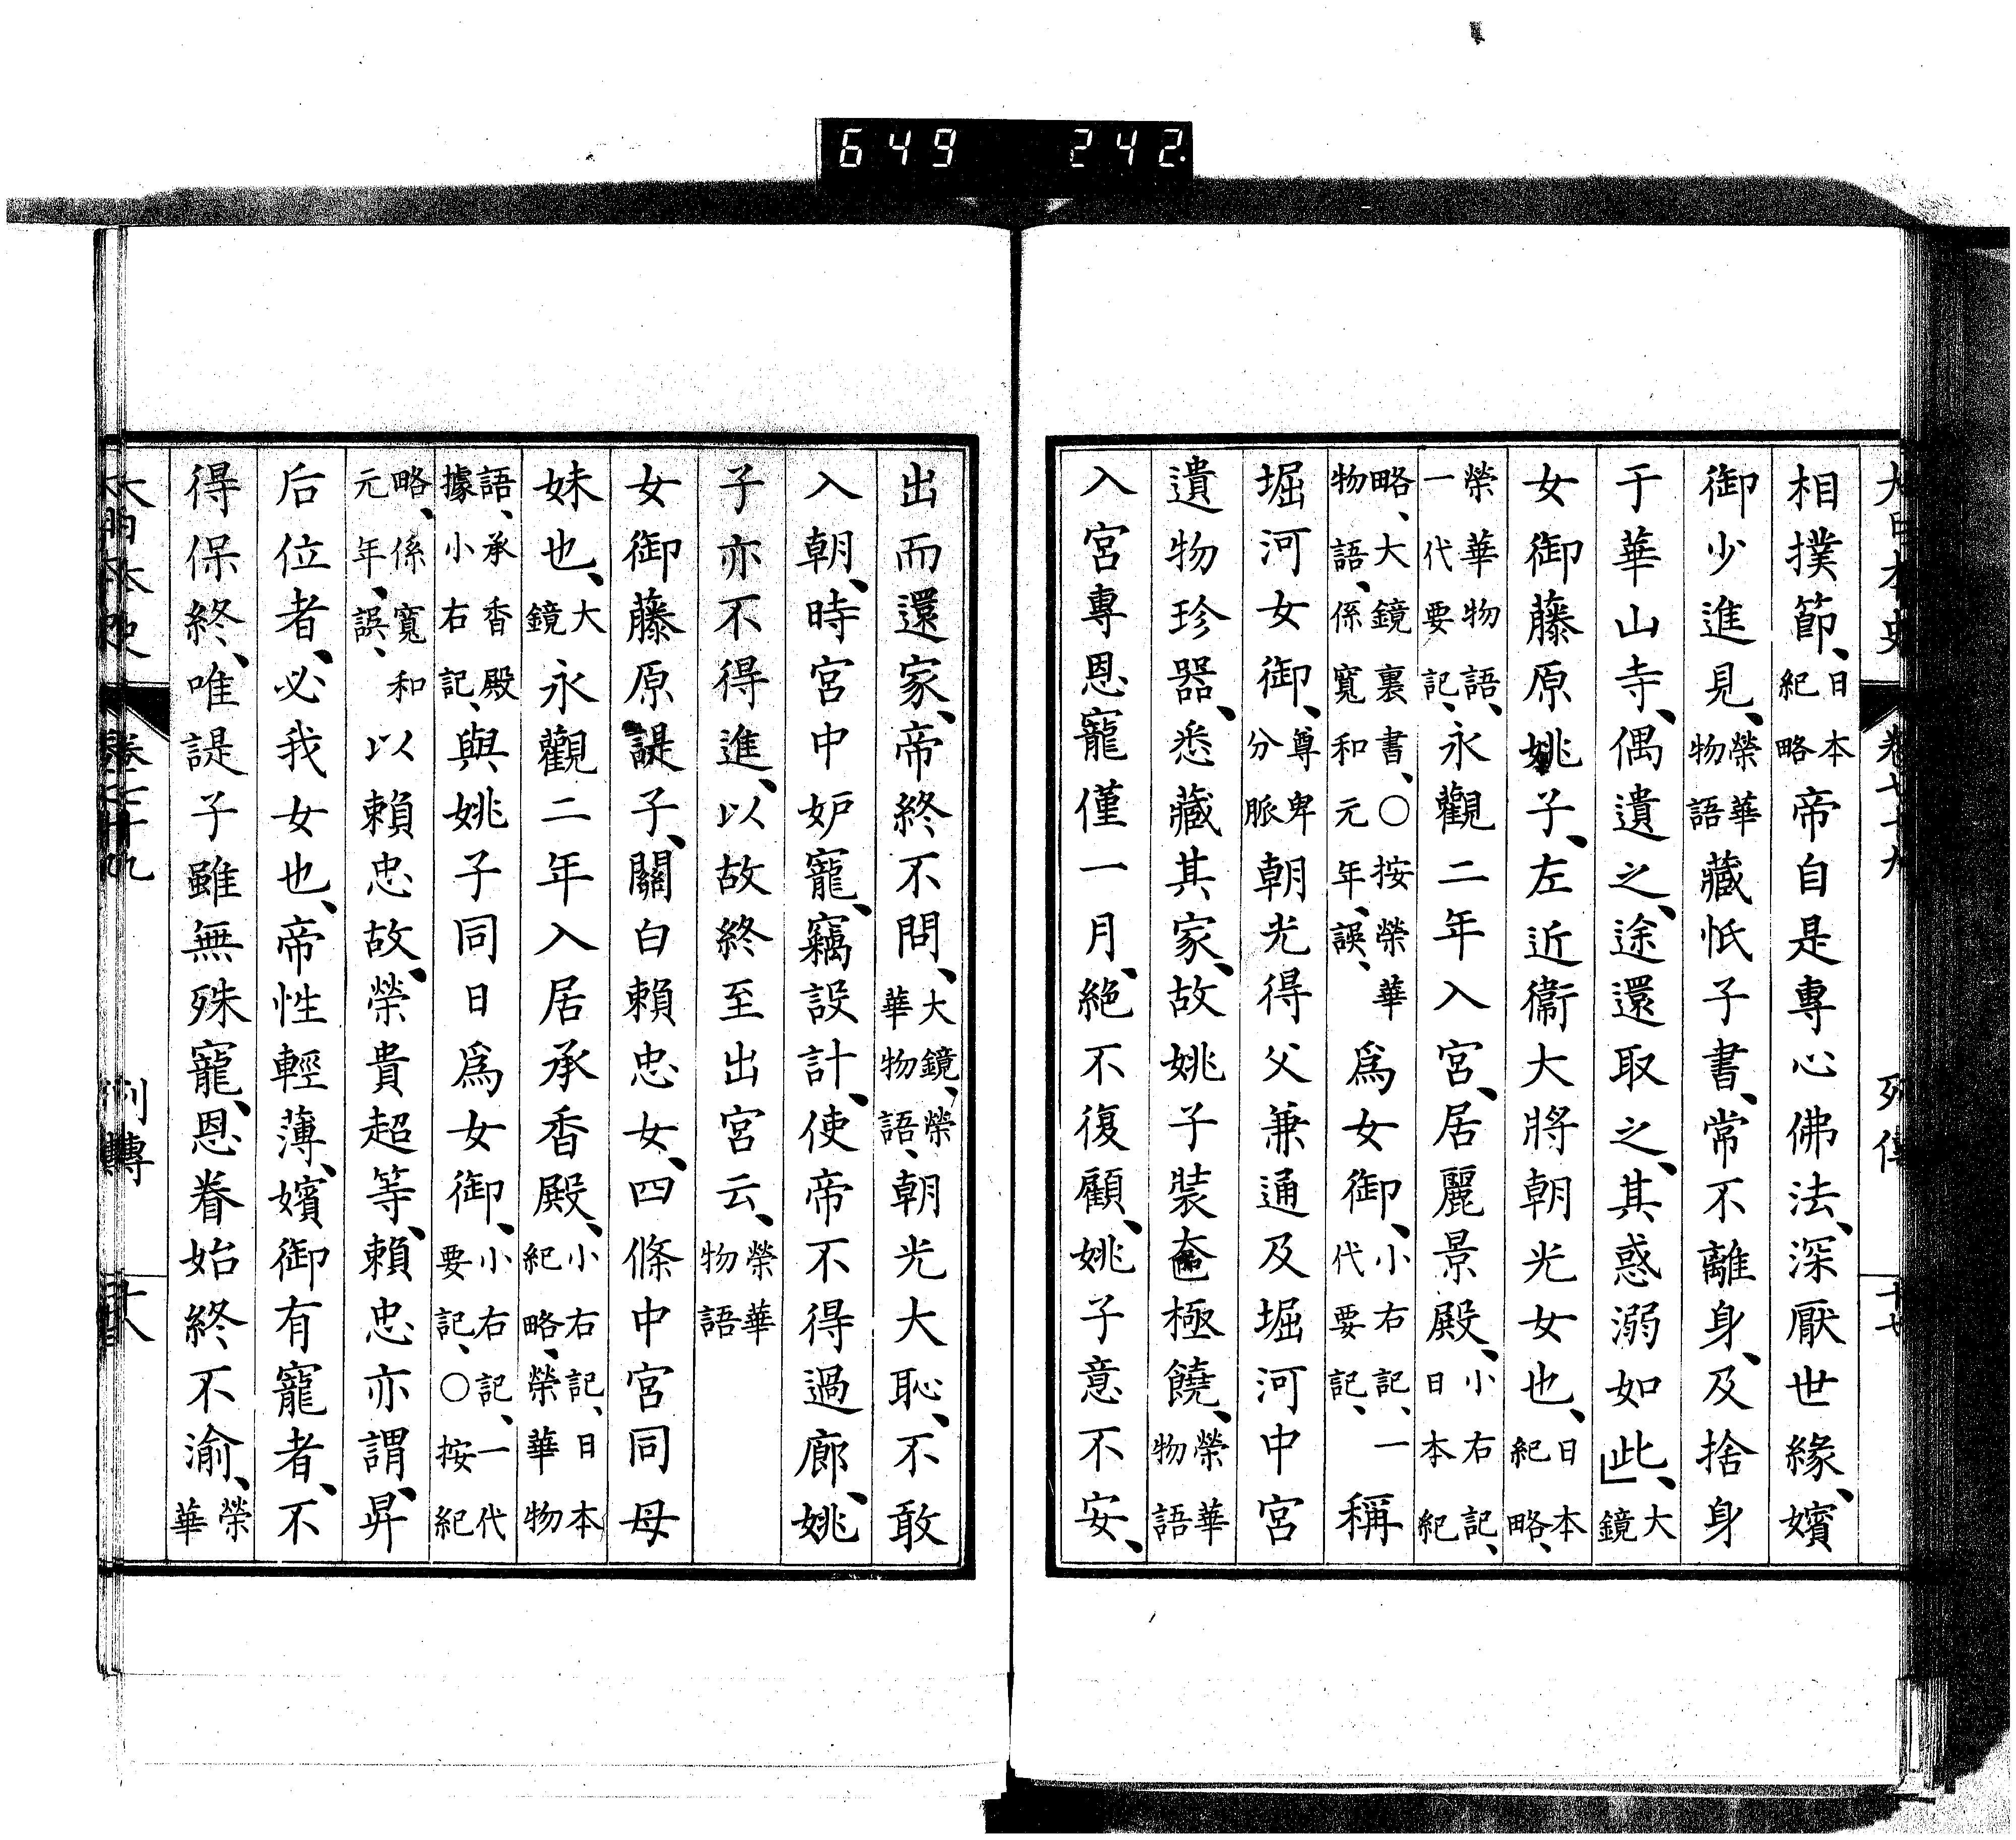 649 242.
大日本史 卷七十九 列傳 十七
相撲節、日本紀略帝自是專心佛法、深厭世緣、嬪
御少進見、榮華物語藏忯子書、常不離身、及捨身
于華山寺、偶遺之、途還取之、其惑溺如此、」大鏡
女御藤原姚子、左近衞大將朝光女也、日本紀略、
榮華物語、一代要記、永觀二年入宮、居麗景殿、小右記、日本紀
略、大鏡裏書、〇按榮華物語、係寬和元年、誤、爲女御、小右記、一代要記、稱
堀河女御、尊卑分脈朝光得父兼通及堀河中宮
遺物珍器、悉藏其家、故姚子裝奩極饒、榮華物語
入宮專恩寵僅一月、絕不復顧、姚子意不安、
出而還家、帝終不問、大鏡、榮華物語、朝光大恥、不敢
入朝、時宮中妒寵、竊設計、使帝不得過廊、姚
子亦不得進、以故終至出宮云、榮華物語
女御藤原諟子、關白賴忠女、四條中宮同母
妹也、大鏡永觀二年入居承香殿、小右記、日本紀略、榮華物
語、承香殿據小右記、與姚子同日爲女御、小右記、一代要記、〇按紀
略、係寬和元年、誤、以賴忠故、榮貴超等、賴忠亦謂、昇
后位者、必我女也、帝性輕薄、嬪御有寵者、不
得保終、唯諟子雖無殊寵、恩眷始終不渝、榮華
大日本史 卷七十九 列傳 十八